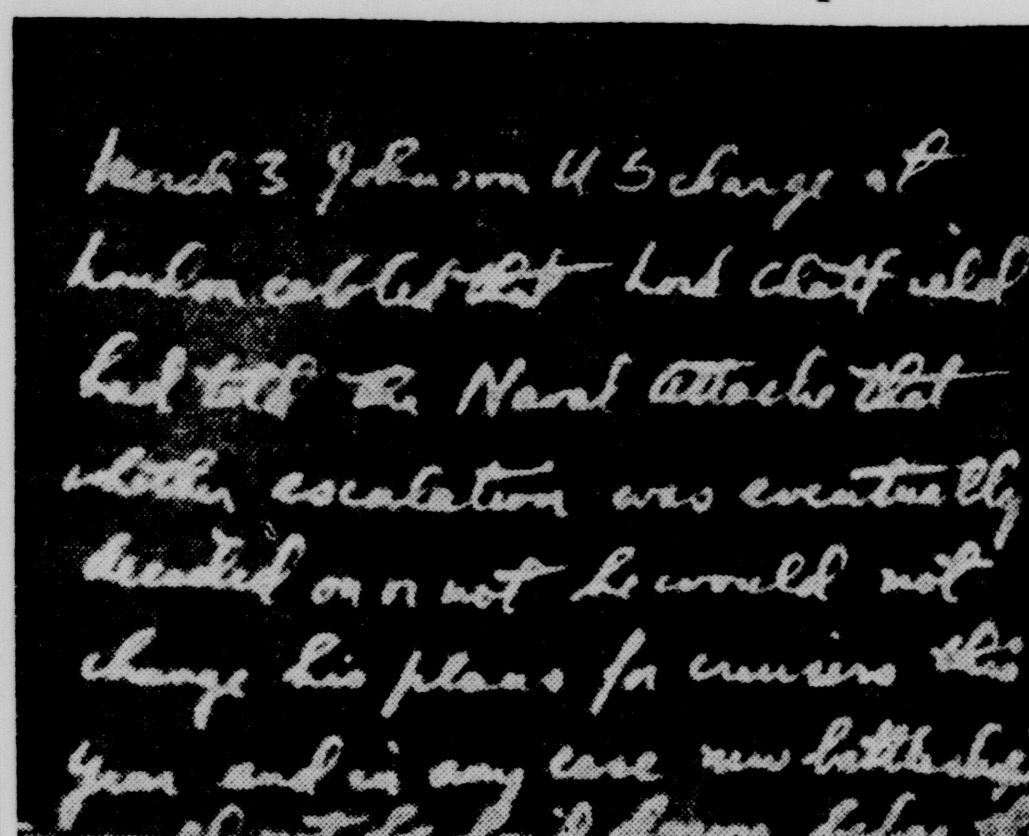 March 3 Johnson U S charge at
London cabled that Lord Chatfield
had told the Naval Attache that
whether escalation was eventually
decided on or not he would not
change his plans for cruisers this
year and in any case new battleships
not be